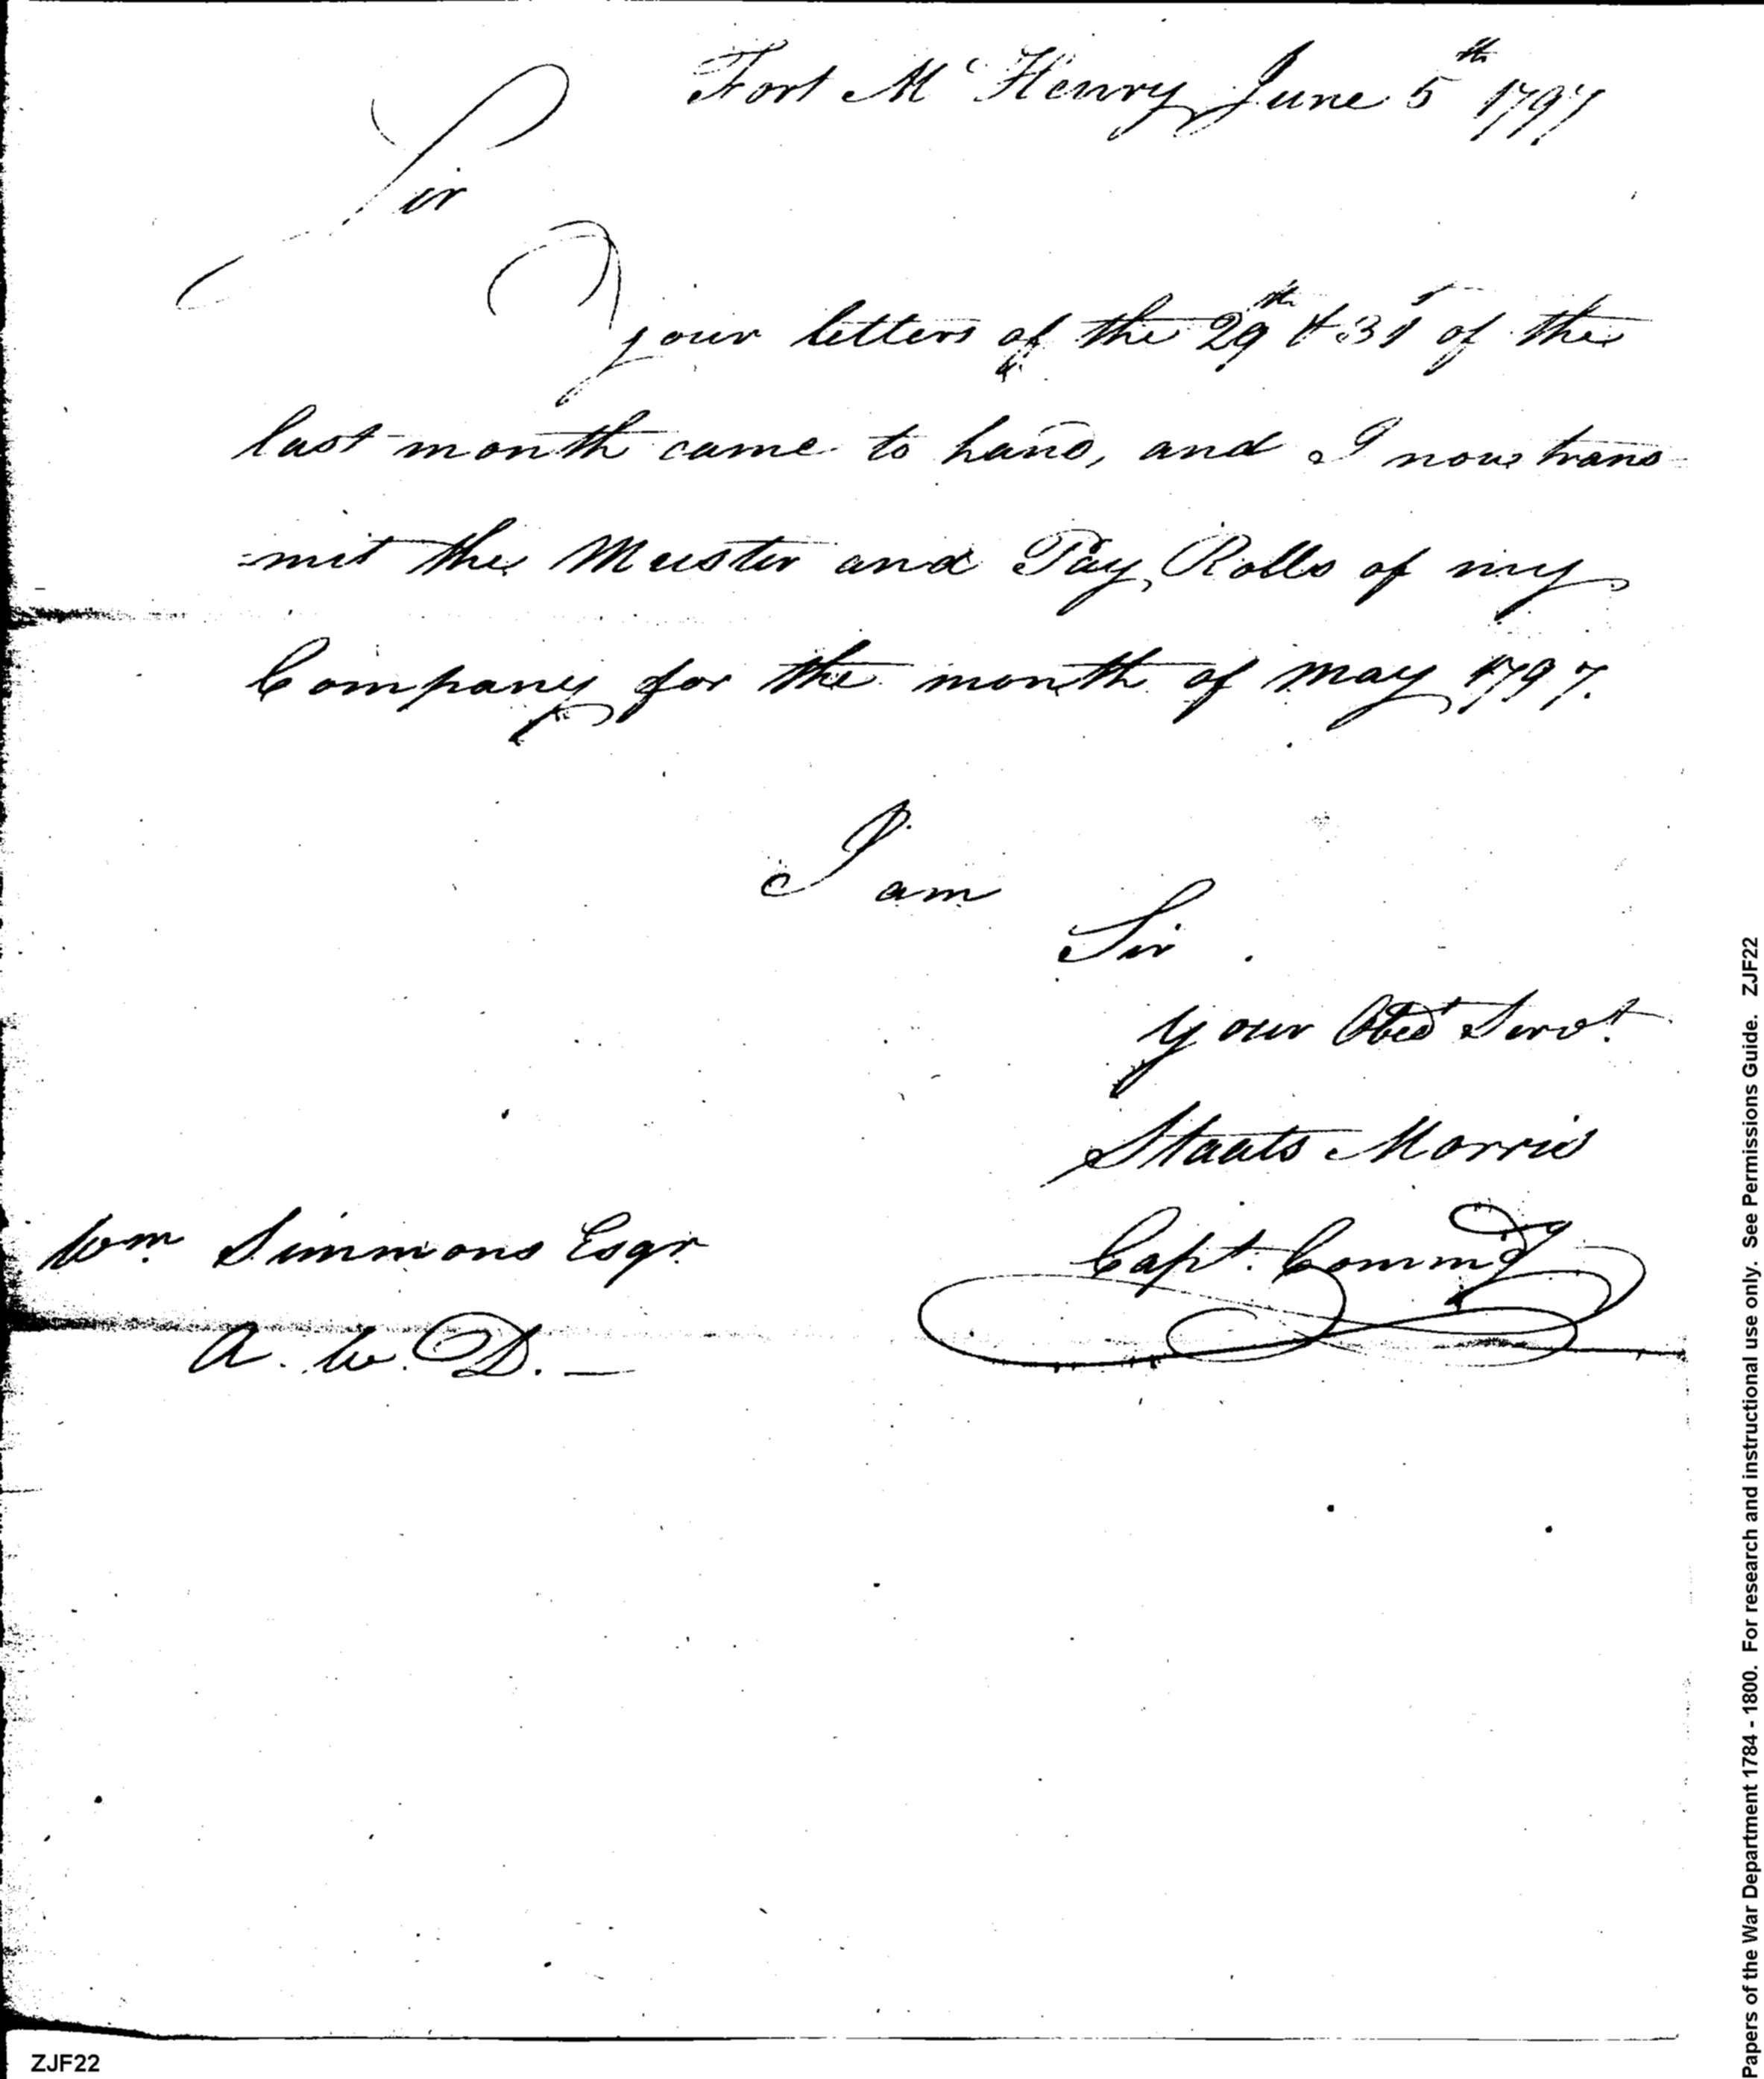 Fort Mc Henry June 5th 1797
Sir
your letters of the 29th & 31st of the
last month came to hand, and I now trans
-mit the Muster and Pay Rolls of my
Company for the month of may 1797.
I am
Sir
your Obed Servt
Staats Morris
Capt. Commdg
Wm Simmons Esqr
A. W. D. —
ZJF22
Papers of the War Department 1784 - 1800. For research and instructional use only. See Permissions Guide. ZJF22